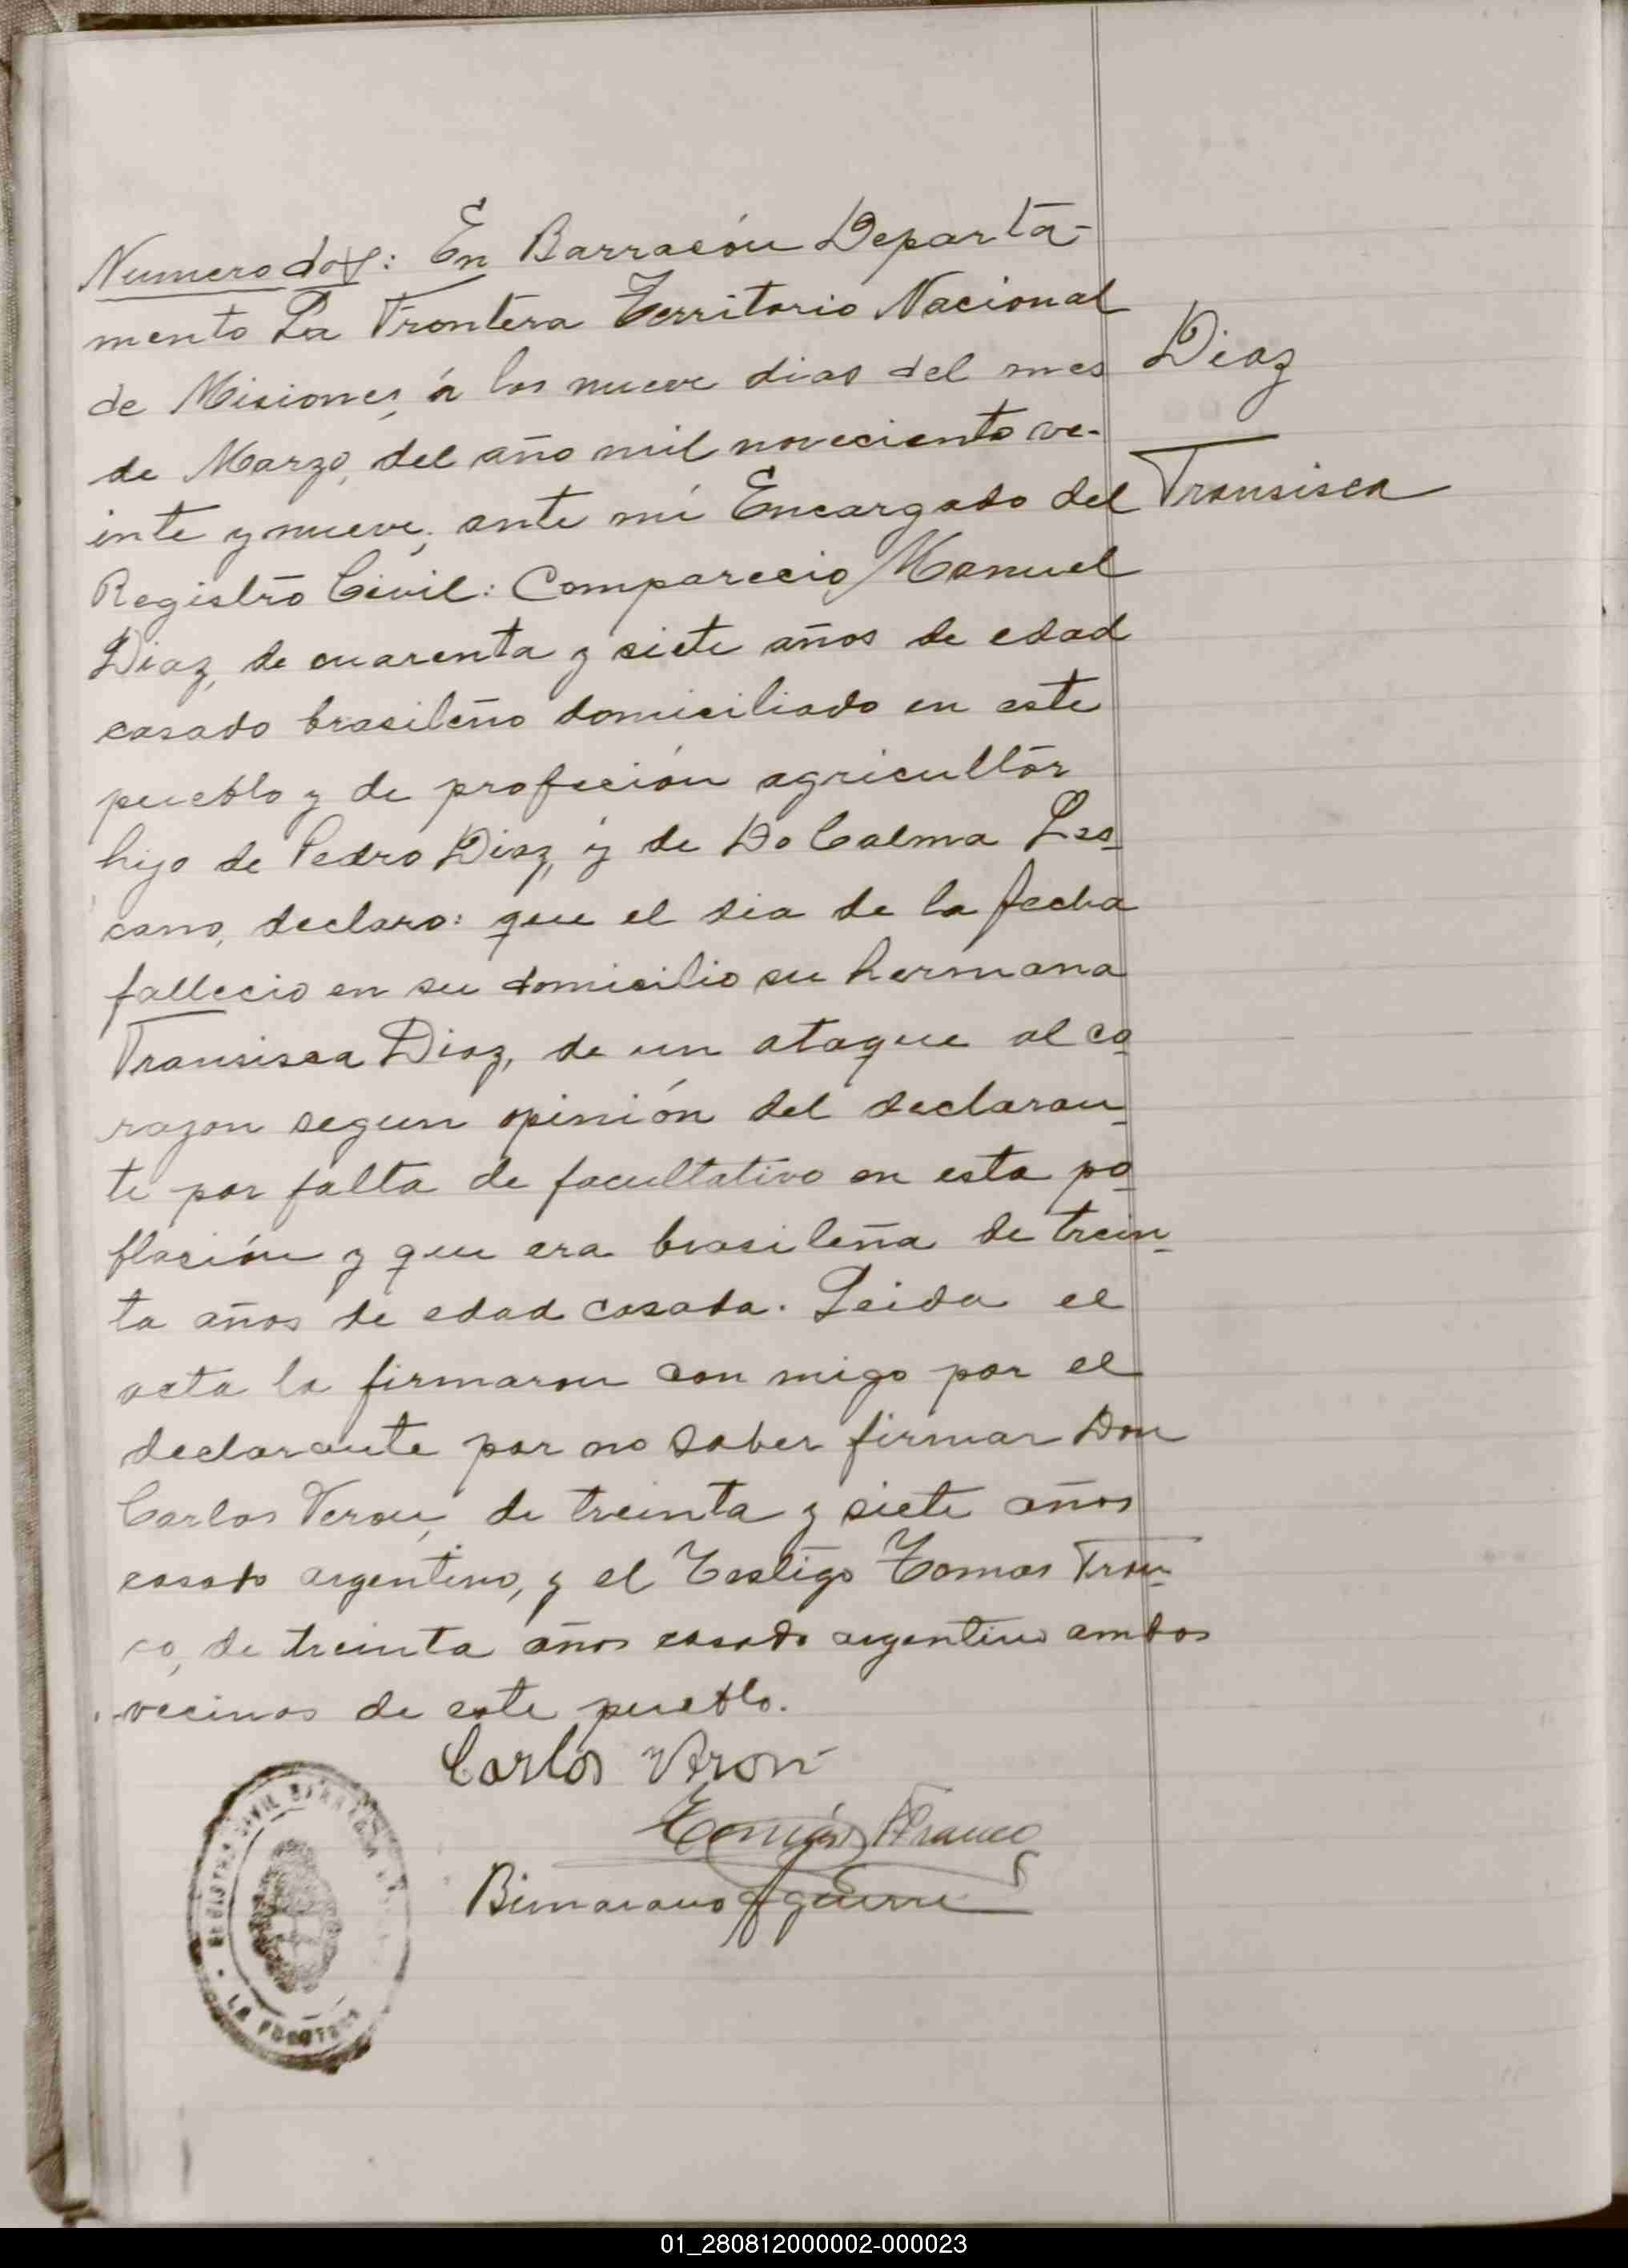 Numero dos: En Barracón Departa-
mento La Frontera Territorio Nacional
de Misiones, á los nueve dias del mes
de Marzo, del año mil noveciento ve-
inte y nueve, ante mi Encargado del
Registro Civil: Comparecio Manuel
Diaz, de cuarenta y siete años de edad
casado brasileño domiciliado en este
pueblo y de profeción agricultor
hijo de Pedro Diaz, y de Do Calma Les-
cano, declaro: que el dia de la fecha
fallecio en su domicilio su hermana
Fransisca Diaz, de un ataque al co-
razon segun opinión del declaran-
te por falta de facultativo en esta po-
blación y que era brasileña de trein-
ta años de edad casada. Leida el
acta la firmaron con migo por el
declarante por no saber firmar Don
Carlos Veron, de treinta y siete años
casado argentino, y el Testigo Tomas Fran-
co, de treinta años casado argentino ambos
vecinos de este pueblo.
Diaz
Fransisca
Carlos Veron
Tomás Franco
Aguirre
REGISTRO CIVIL BARRACON
LA FRONTERA
01_280812000002-000023